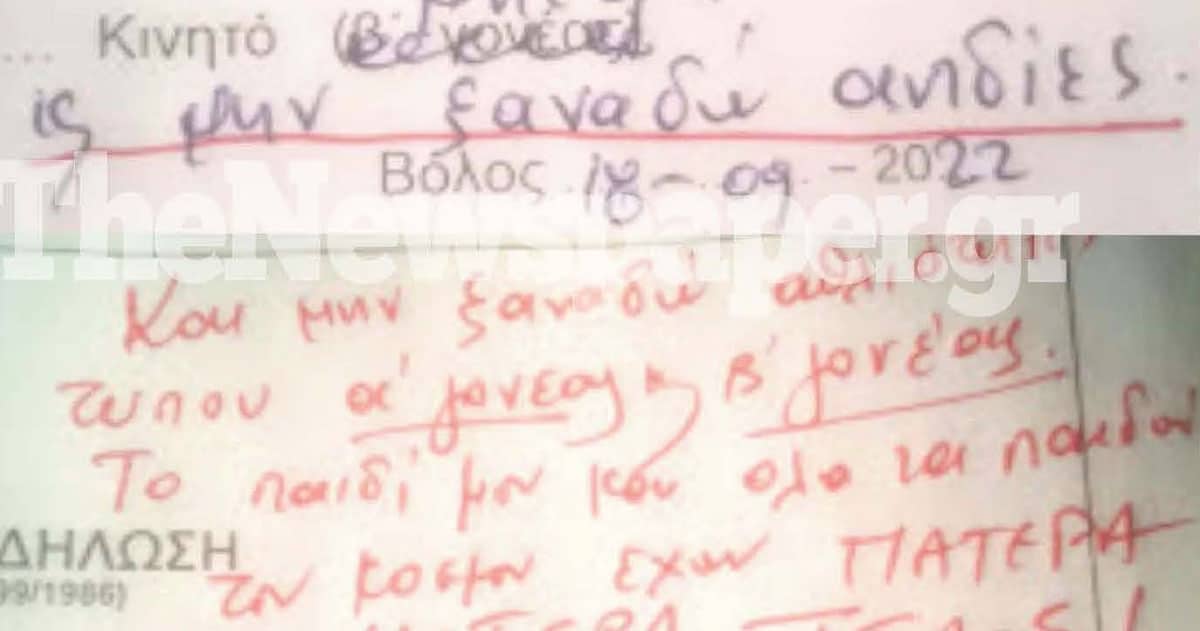 ... Κινητό (β' γονέας)
ις μην ξαναδώ αηδίες.
Βόλος 18-09-2022
TheNewspaper.gr
Και μην ξαναδώ
τυπου α' γονεας β' γονέας.
Το παιδί μου και ολα τα παιδιά
ΔΗΛΩΣΗ του κοσμου εχουν ΠΑΤΕΡΑ
99/1986)